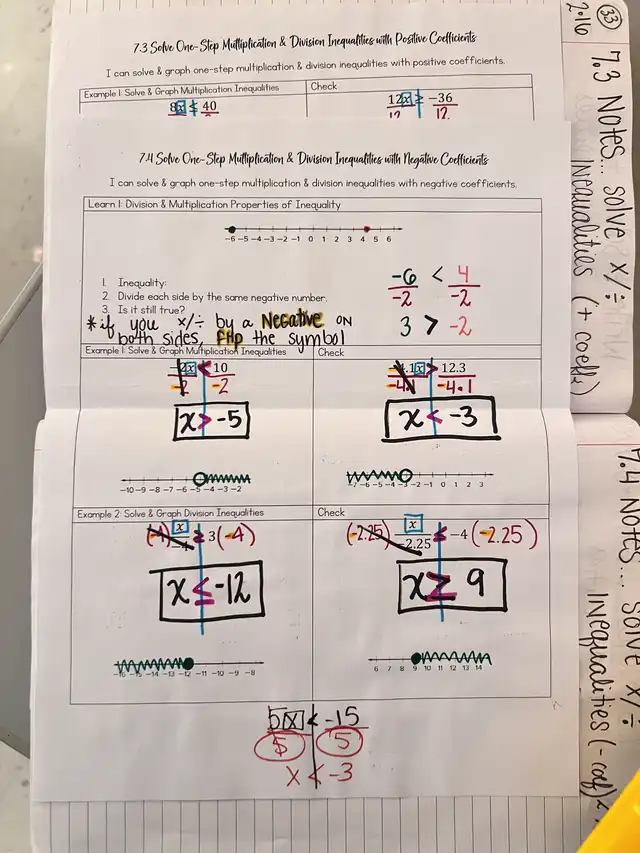 7.3 Solve One-Step Multiplication & Division Inequalities with Positive Coefficients
I can solve & graph one-step multiplication & division inequalities with positive coefficients.
Example 1: Solve & Graph Multiplication Inequalities
Check
8x ≤ 40
12x ≥ -36
12 12
7.4 Solve One-Step Multiplication & Division Inequalities with Negative Coefficients
I can solve & graph one-step multiplication & division inequalities with negative coefficients.
Learn 1: Division & Multiplication Properties of Inequality
-6 -5 -4 -3 -2 -1 0 1 2 3 4 5 6
1. Inequality:
2. Divide each side by the same negative number.
3. Is it still true?
-6 < 4
-2 -2
3 > -2
*if you x/÷ by a Negative on
both sides, flip the symbol
Example 1: Solve & Graph Multiplication Inequalities
Check
-2x < 10
-2 -2
x > -5
-4.1x > 12.3
-4.1 -4.1
x < -3
-10 -9 -8 -7 -6 -5 -4 -3 -2
-7 -6 -5 -4 -3 -2 -1 0 1 2 3
Example 2: Solve & Graph Division Inequalities
Check
(-4) x ≥ 3 (-4)
-4
x ≤ -12
(-2.25) x ≤ -4 (-2.25)
-2.25
x ≥ 9
-16 -15 -14 -13 -12 -11 -10 -9 -8
6 7 8 9 10 11 12 13 14
5x < -15
5 5
x < -3
33
2.16
7.3 Notes... solve x/÷
Inequalities (+ coeff)
7.4 Notes... solve x/÷
Inequalities (- coef)